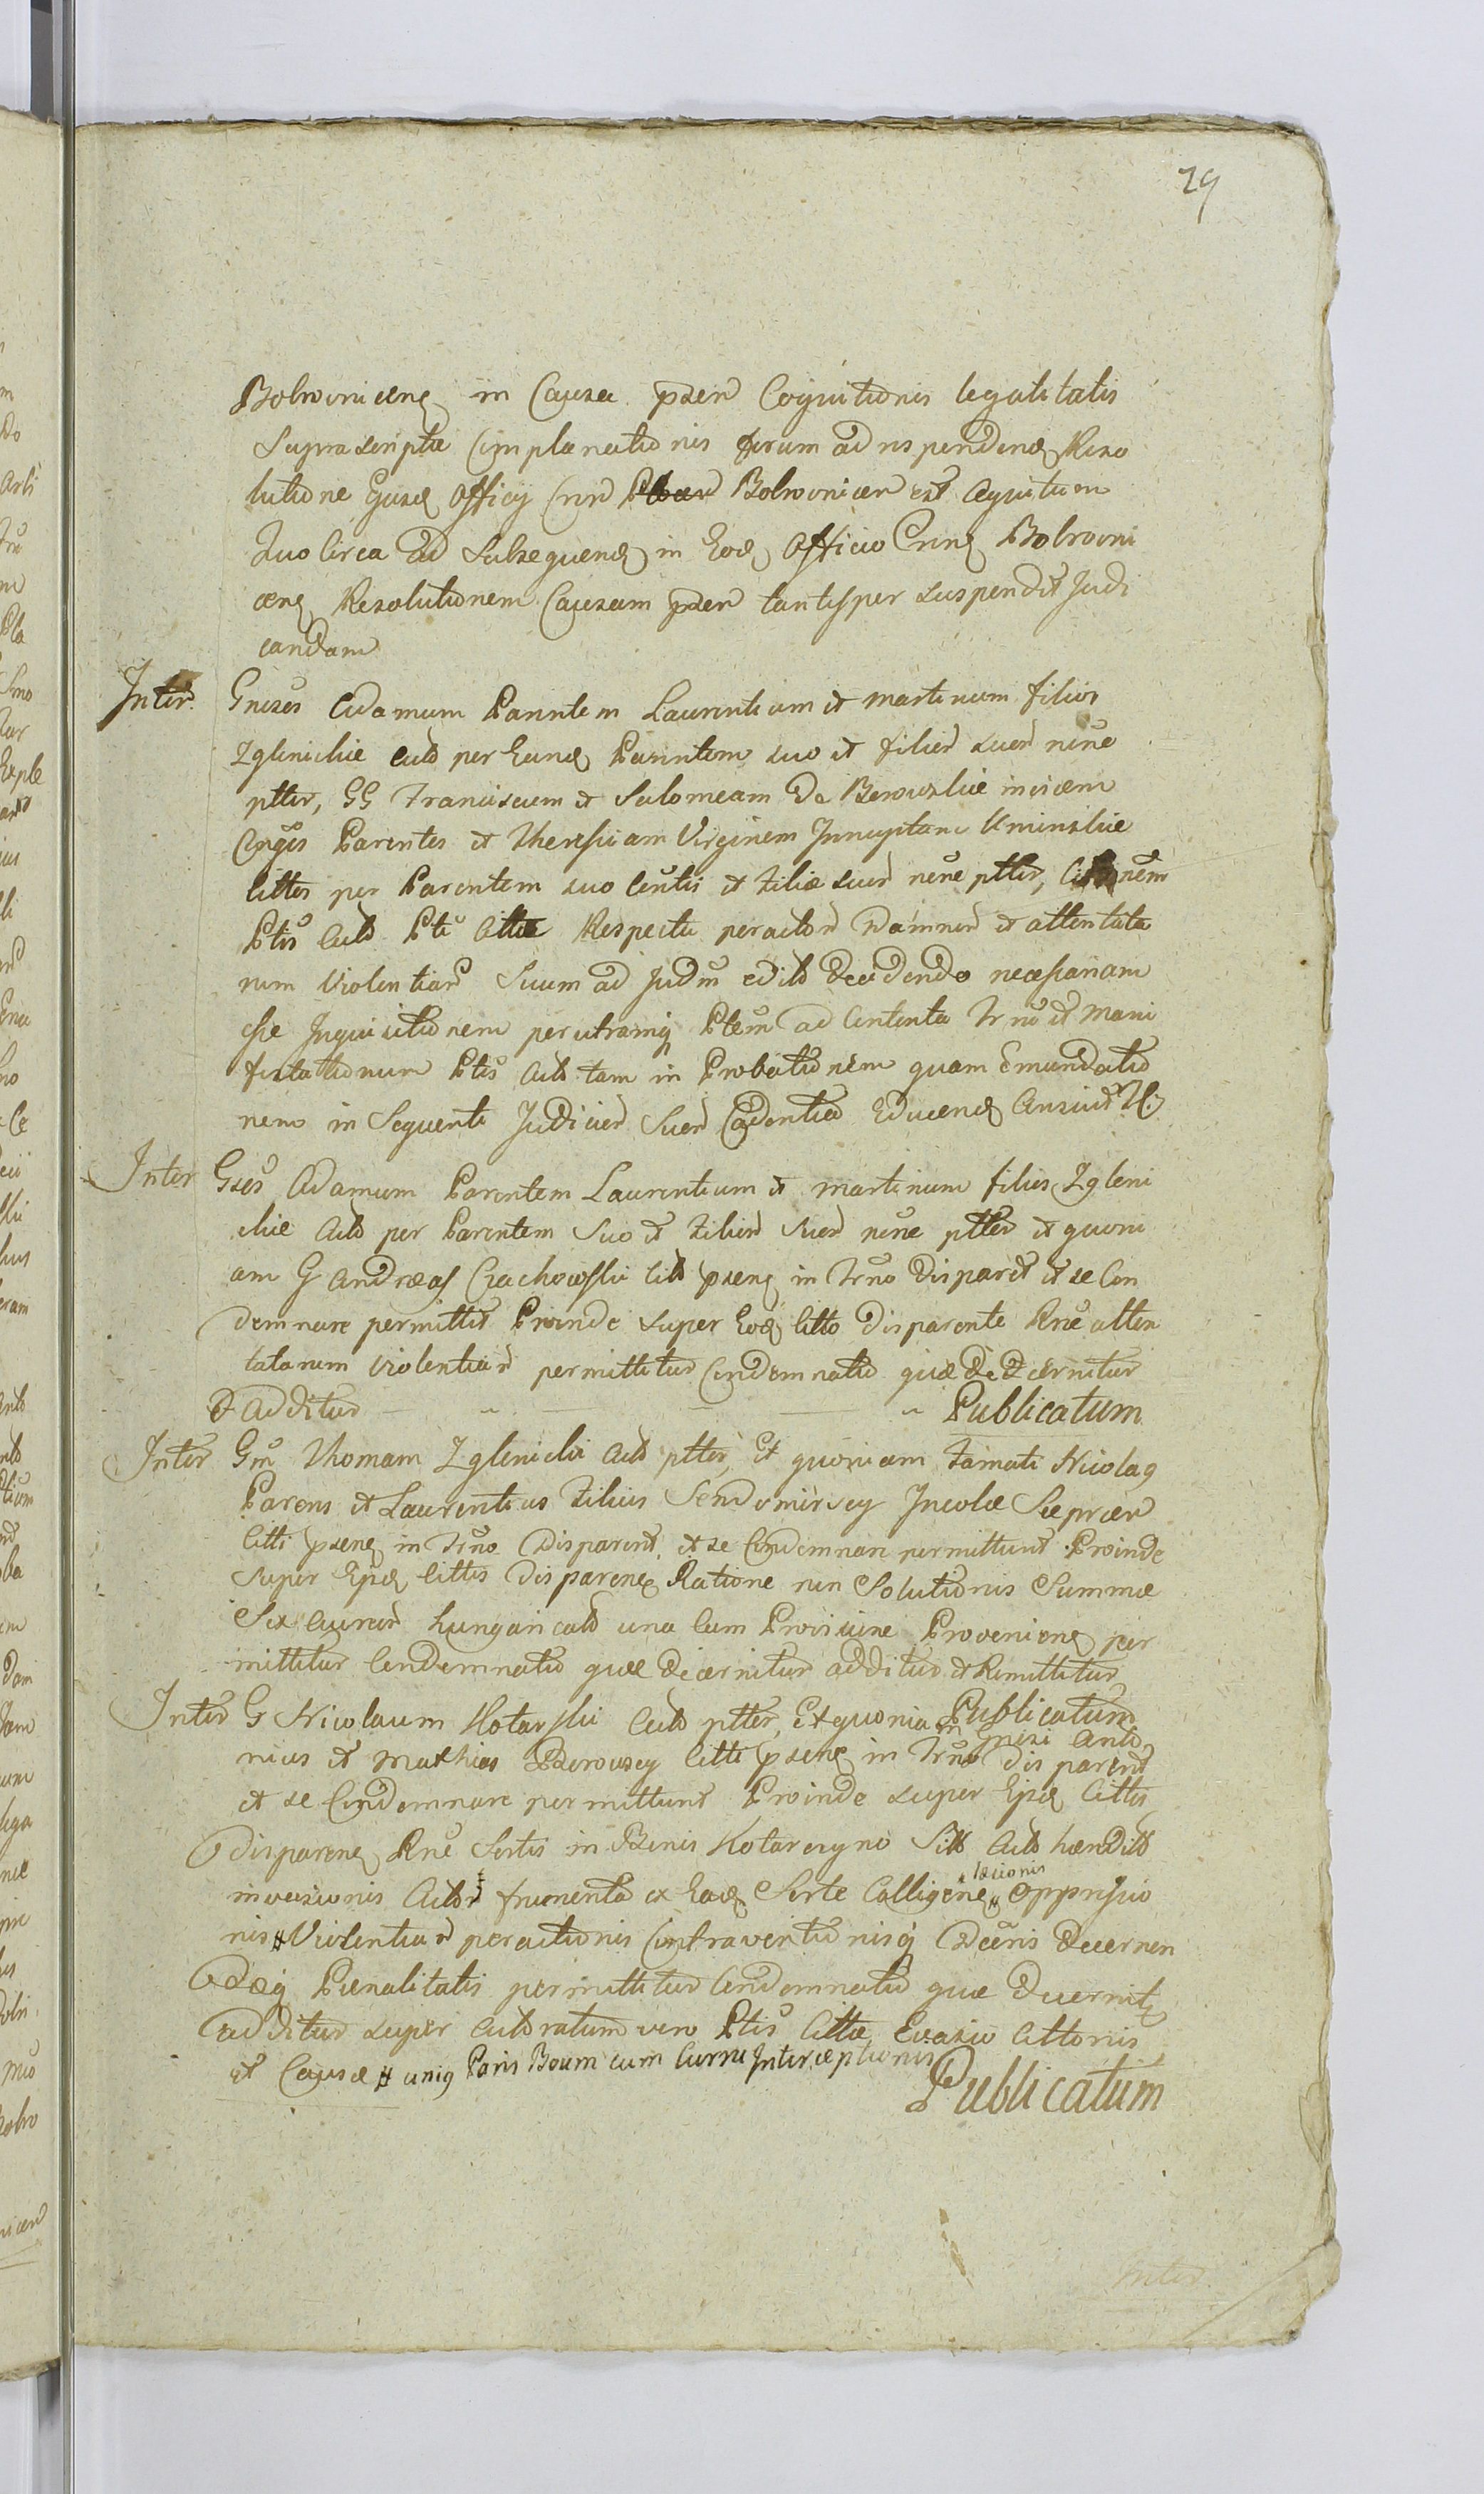 29
Bobrovicen in Causa psen Cognitionis legalitatis
Suprascriptæ Complanationis forum ad respondend Reso
lutione Ejusd Officij Cren Bobrovnicen est cognitum
Quo Circa ad Subsequend in Eod Officio Cren Bobrovni
cen Resolutionem Causam psen tantisper suspendit Judi
candam
Inter Gnesos Adamum Parentem Laurentium et Martinum filios
Zglinickie Acto per Eund Parentem suo et filior suor nene
ptter, GG Franciscum et Salomeam De Berowskie invicem
Conges Parentes et Theressiam Virginem Innuptam Uminskie
Cittos per Parentem suo Contis et Filiæ suæ nene ptter,
Ptis Acto Pti Cittæ Respectu peractor Damnor et attentata
rum Violentiar Suum ad Judm edito decidendo necessariam
esse Inquisitionem per utramq Ptem ad Contenta Trno et Mani
festationum Ptis Acto tam in Probationem quam Emundatio
nem in Sequenti Judicior Suor Cadentia Educend
Inter Gsos Adamum Parentem Laurentium et Martinum filios Zgleni
ckie Acto per Parentem Suo et Filior suor nene ptter et quoni
am G Andreas Czachowski Citt psens in Trno Disparet et se Con
demnare permittit Proinde super Eod Citto disparente Rne atten
tatarum Violentiar permittitur Condemnatio quæ decernitur
et additur Publicatum
Inter Gm Thomam Zglenicki Acto ptter, Et quoniam Famati Nicolaq
Parens et Laurentius Filius Sendomirscy Incolæ Sieprcen
Citti psens in Trno Disparent et se Condemnare permittunt Proinde
Super Ijsd Cittis disparend Ratione non Solutionis Summæ
Sex Aureor hungaricato una Cum Provisione Proveniend per
mittitur Condemnatio quæ decernitur additur et Remittitur
Publicatum
Inter G Nicolaum Kotarski Acto ptter, Et quoniam Gnesi Anto
nius et Mathias Bderowscy Citti psens in Trno disparent
et se Condemnare permittunt Proinde super Ijsd Cittis
disparend Rne Sortis in Bonis Kotarczyno Sitt Acto hæredit
invasionis Actor frumenta ex Ead Sorte Colligend læsionis Oppressio
nis # Violentiar peractionis Contraventionisq Decris decernen
dæq Pœnalitatis permittitur Condemnatio quæ decernit
additur super Actoratum vero Ptis Cittæ Evasio Cittonis
et Causæ # uniq Paris Boum cum Curru Interceptionis
Publicatum
Inter